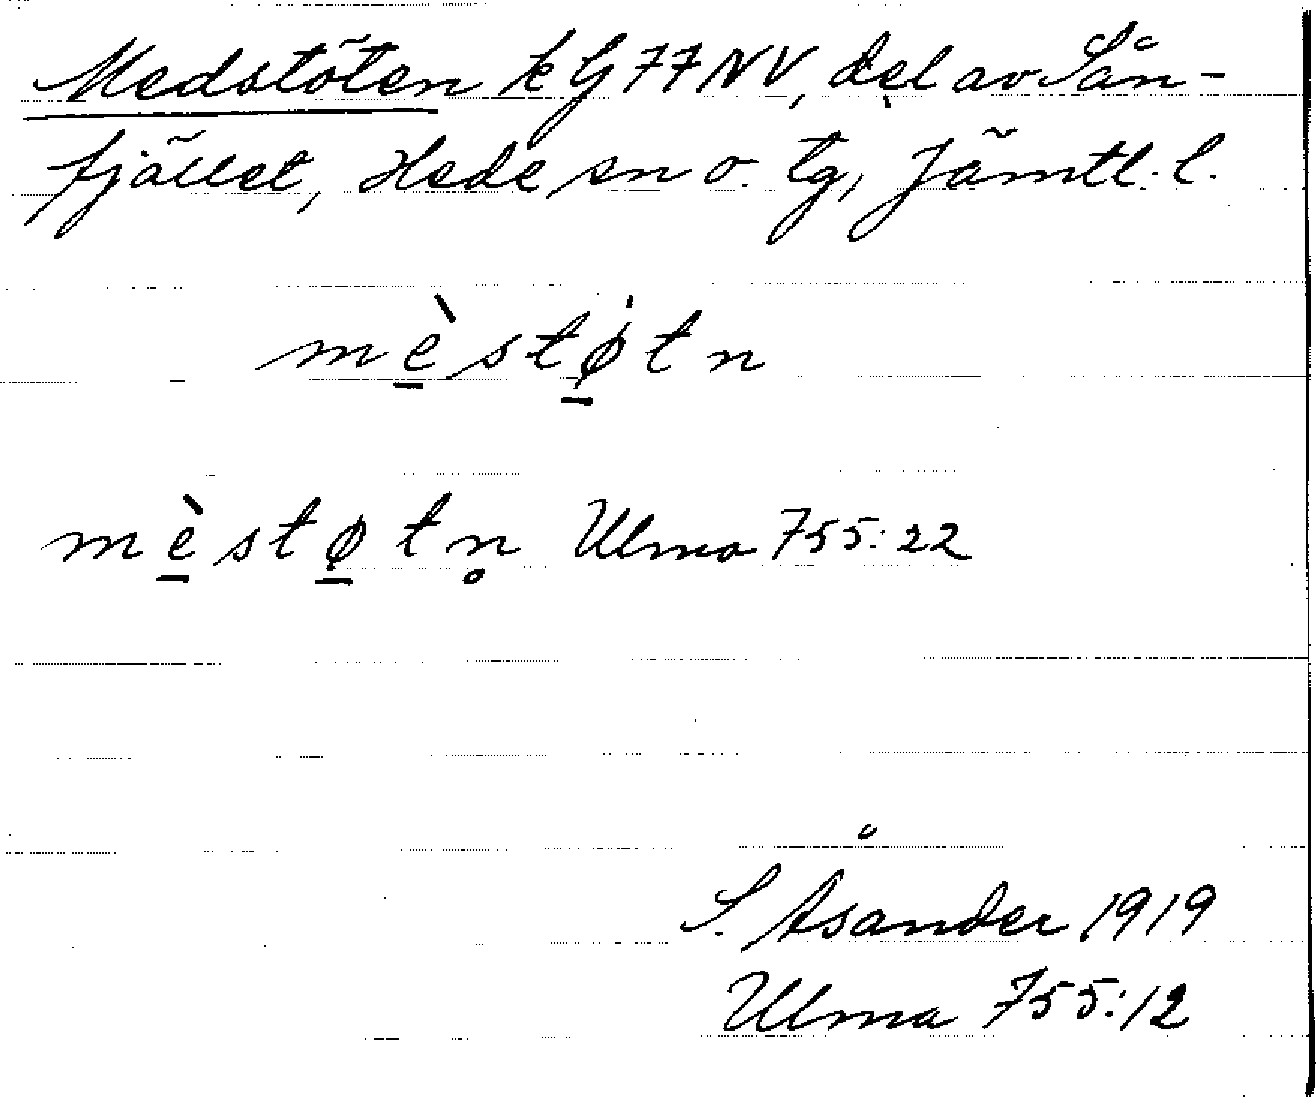 Medstöten k G 77 NV, del av Sån-
fjället, Hede sn o. tg, Jämtl. l.
mè̠stø̠̍tn
mè̠stø̠tn̥ Ulma 755:22
S. Åsander 1919
Ulma 755:12